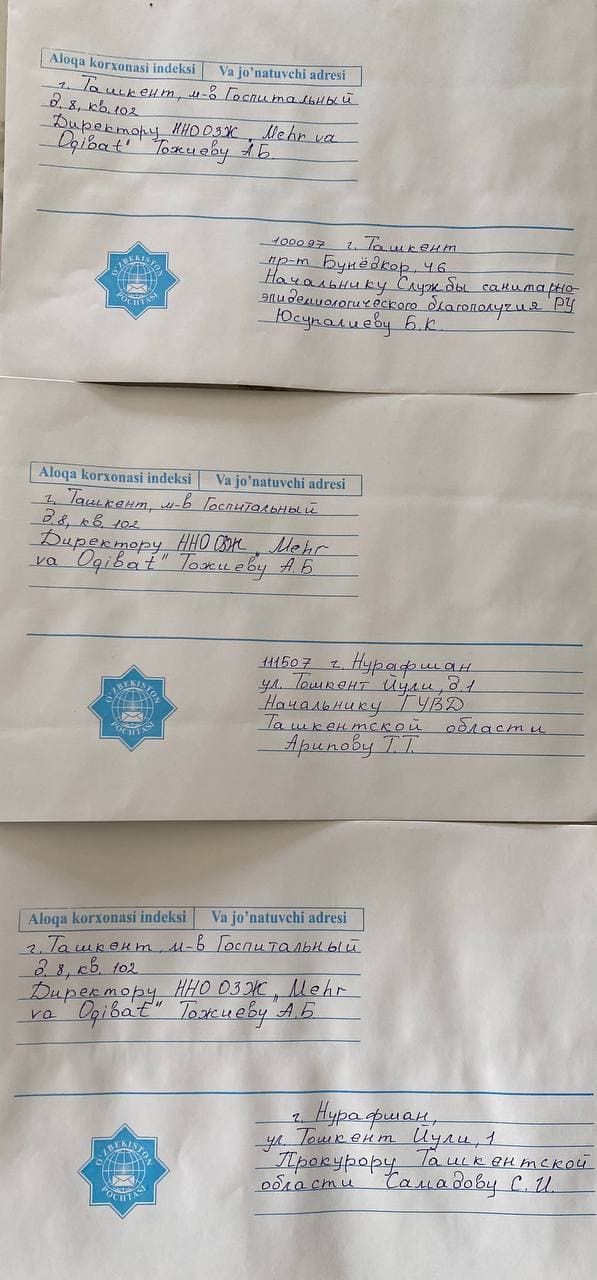 Aloqa korxonasi indeksi Va jo'natuvchi adresi
г. Ташкент, м-в Госпитальный
д. 8, кв. 102
Директору ННО ОЗЖ „Mehr va
Oqibat" Тожиеву А.Б.
O'ZBEKISTON
POCHTASI
100097 г. Ташкент
пр-т Бунёдкор, 46
Начальнику Службы санитарно-
эпидемиологического благополучия РУ
Юсупалиеву Б.К.
Aloqa korxonasi indeksi Va jo'natuvchi adresi
г. Ташкент, м-в Госпитальный
д. 8, кв. 102
Директору ННО ОЗЖ „Mehr
va Oqibat" Тожиеву А.Б
O'ZBEKISTON
POCHTASI
111507 г. Нурафшан
ул. Тошкент Йули, д. 1
Начальнику ГУВД
Ташкентской области
Арипову Т.Т.
Aloqa korxonasi indeksi Va jo'natuvchi adresi
г. Ташкент, м-в Госпитальный
д. 8, кв. 102
Директору ННО ОЗЖ „Mehr
va Oqibat" Тожиеву А.Б.
O'ZBEKISTON
POCHTASI
г. Нурафшан,
ул. Тошкент Йули, 1
Прокурору Ташкентской
области Самадову С.И.